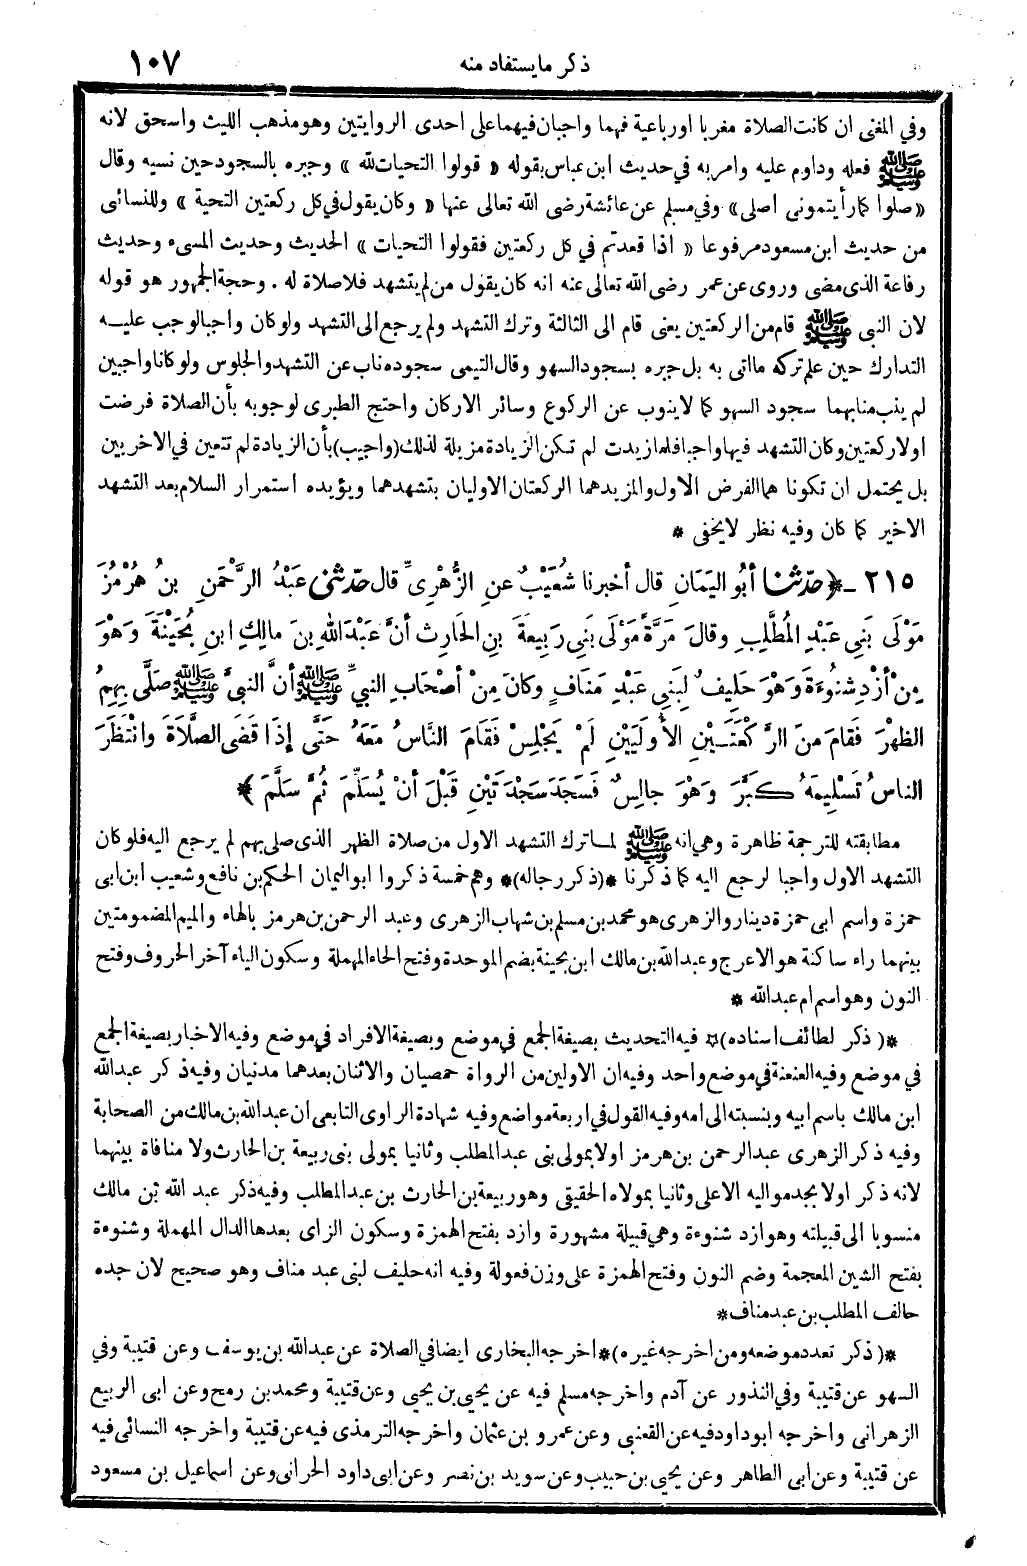 ذكر ما يستفاد منه
١٠٧
وفي المغنى ان كانت الصلاة مغربا او رباعية فهما واجبان فيهما على احدى الروايتين وهو مذهب الليث واسحق لانه
ﷺ فعله وداوم عليه وامر به في حديث ابن عباس بقوله « قولوا التحيات لله » وجبره بالسجود حين نسيه وقال
« صلوا كما رأيتمونى اصلى » وفي مسلم عن عائشة رضى الله تعالى عنها « وكان يقول في كل ركعتين التحية » وللنسائى
من حديث ابن مسعود مرفوعا « اذا قعدتم في كل ركعتين فقولوا التحيات » الحديث وحديث المسىء وحديث
رفاعة الذى مضى وروى عن عمر رضى الله تعالى عنه انه كان يقول من لم يتشهد فلا صلاة له . وحجة الجمهور هو قوله
لان النبى ﷺ قام من الركعتين يعنى قام الى الثالثة وترك التشهد ولم يرجع الى التشهد ولو كان واجبا لوجب عليه
التدارك حين علم تركه ما اتى به بل جبره بسجود السهو وقال التيمى سجوده ناب عن التشهد والجلوس ولو كانا واجبين
لم ينب منابهما سجود السهو كما لا ينوب عن الركوع وسائر الاركان واحتج الطبرى لوجوبه بأن الصلاة فرضت
اولا ركعتين وكان التشهد فيها واجبا فلما زيدت لم تكن الزيادة مزيلة لذلك (واجيب) بأن الزيادة لم تتعين في الاخريين
بل يحتمل ان تكونا هما الفرض الاول والمزيد هما الركعتان الاوليان بتشهدهما ويؤيده استمرار السلام بعد التشهد
الاخير كما كان وفيه نظر لا يخفى *
٢١٥ ـ ﴿ حدّثنا أبُو اليَمَانِ قال أخبرنا شُعَيْبٌ عنِ الزُّهْرِىِّ قال حدّثنى عَبْدُ الرَّحْمَنِ بنُ هُرْمُزَ
مَوْلَى بَنِى عَبْدِ المُطَّلِبِ وقالَ مَرَّةً مَوْلَى بَنِى رَبِيعَةَ بنِ الحَارِثِ أنَّ عَبْدَ اللهِ بنَ مالِكٍ ابنِ بُحَيْنَةَ وَهْوَ
مِنْ أزْدِ شَنُوءَةَ وَهْوَ حَلِيفٌ لِبَنِى عَبْدِ مَنَافٍ وكانَ مِنْ أصْحَابِ النبىِّ ﷺ أنَّ النبىَّ ﷺ صَلَّى بِهِمُ
الظهْرَ فَقَامَ منَ الرَّكْعَتَيْنِ الأُولَيَيْنِ لَمْ يَجْلِسْ فَقَامَ النَّاسُ مَعَهُ حَتَّى إذَا قَضَى الصَّلَاةَ وانْتَظَرَ
الناسُ تَسْلِيمَهُ كَبَّرَ وَهْوَ جالِسٌ فَسَجَدَ سَجْدَتَيْنِ قَبْلَ أنْ يُسَلِّمَ ثُمَّ سَلَّمَ ﴾
مطابقته للترجمة ظاهرة وهي انه ﷺ لما ترك التشهد الاول من صلاة الظهر الذى صلى بهم لم يرجع اليه فلو كان
التشهد الاول واجبا لرجع اليه كما ذكرنا *(ذكر رجاله)* وهم خمسة ذكروا ابو اليمان الحكم بن نافع وشعيب ابن ابى
حمزة واسم ابى حمزة دينار والزهرى هو محمد بن مسلم بن شهاب الزهرى وعبد الرحمن بن هرمز بالهاء والميم المضمومتين
بينهما راء ساكنة هو الاعرج وعبد الله بن مالك ابن بحينة بضم الموحدة وفتح الحاء المهملة وسكون الياء آخر الحروف وفتح
النون وهو اسم ام عبد الله *
*( ذكر لطائف اسناده )* فيه التحديث بصيغة الجمع في موضع وبصيغة الافراد في موضع وفيه الاخبار بصيغة الجمع
في موضع وفيه العنعنة في موضع واحد وفيه ان الاولين من الرواة حمصيان والاثنان بعدهما مدنيان وفيه ذكر عبد الله
ابن مالك باسم ابيه وبنسبته الى امه وفيه القول في اربعة مواضع وفيه شهادة الراوى التابعى ان عبد الله بن مالك من الصحابة
وفيه ذكر الزهرى عبد الرحمن بن هرمز اولا بمولى بنى عبد المطلب وثانيا بمولى بنى ربيعة بن الحارث ولا منافاة بينهما
لانه ذكر اولا بجد مواليه الاعلى وثانيا بمولاه الحقيقى وهو ربيعة بن الحارث بن عبد المطلب وفيه ذكر عبد الله بن مالك
منسوبا الى قبيلته وهو ازد شنوءة وهي قبيلة مشهورة وازد بفتح الهمزة وسكون الزاى بعدها الدال المهملة وشنوءة
بفتح الشين المعجمة وضم النون وفتح الهمزة على وزن فعولة وفيه انه حليف لبنى عبد مناف وهو صحيح لان جده
حالف المطلب بن عبد مناف *
*( ذكر تعدد موضعه ومن اخرجه غيره )* اخرجه البخارى ايضا في الصلاة عن عبد الله بن يوسف وعن قتيبة وفي
السهو عن قتيبة وفي النذور عن آدم واخرجه مسلم فيه عن يحيى بن يحيى وعن قتيبة ومحمد بن رمح وعن ابى الربيع
الزهرانى واخرجه ابو داود فيه عن القعنبى وعن عمرو بن عثمان واخرجه الترمذى فيه عن قتيبة واخرجه النسائى فيه
عن قتيبة وعن ابى الطاهر وعن يحيى بن حبيب وعن سويد بن نصر وعن ابى داود الحرانى وعن اسماعيل بن مسعود